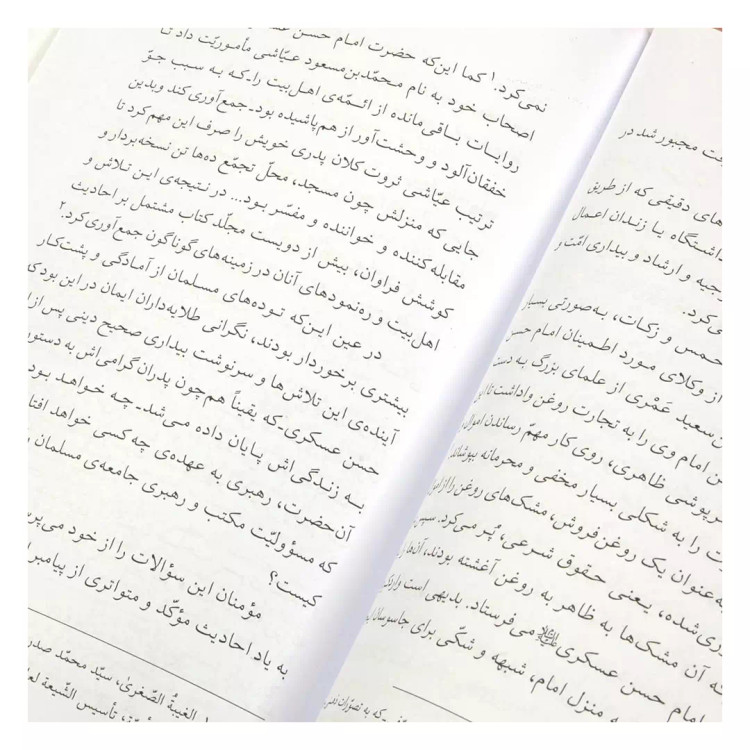 های دقیقی که از طریق
یا زندان اعمال
و ارشاد و بیداری امّت و
می‌کرد.
خمس و زکات، به‌صورتی
از وکلای مورد اطمینان امام حسن
سعید عَمْری از علمای بزرگ به
امام وی را به تجارت روغن واداشت تا
سرپوشی ظاهری، روی کار مهمّ رساندن اموال
را به شکلی بسیار مخفی و محرمانه بپوشاند
به‌عنوان یک روغن‌فروش، مشک‌های روغن را از
شده، یعنی حقوق شرعی، پُر می‌کرد. سپس
که آن مشک‌ها به ظاهر به روغن آغشته بودند، آن‌ها را
امام حسن عسکری می‌فرستاد. بدیهی است
منزل امام، شبهه و شکّی برای
نمی‌کرد.۱ کما این‌که حضرت امام حسن
اصحاب خود به نام محمّدبن‌مسعود عیّاشی مأموریّت داد تا
روایات باقی‌مانده از ائمّه‌ی اهل‌بیت را-که به سبب جوّ
خفقان‌آلود و وحشت‌آور از هم‌پاشیده بود-جمع‌آوری کند و بدین
ترتیب عیّاشی ثروت کلان پدری خویش را صرف این مهم کرد تا
جایی که منزلش چون مسجد، محلّ تجمّع ده‌ها تن نسخه‌بردار و
مقابله کننده و خواننده و مفسّر بود... در نتیجه‌ی این تلاش و
کوشش فراوان، بیش از دویست مجلّد کتاب مشتمل بر احادیث
اهل‌بیت و ره‌نمودهای آنان در زمینه‌های گوناگون جمع‌آوری کرد.۲
در عین این‌که توده‌های مسلمان از آمادگی و پشت‌کار
بیشتری برخوردار بودند، نگرانی طلایه‌داران ایمان در این بود که
آینده‌ی این تلاش‌ها و سرنوشت بیداری صحیح دینی پس از
حسن عسکری-که یقیناً هم‌چون پدران گرامی‌اش به دستور
به زندگی‌اش پایان داده می‌شد-چه خواهد بود
آن‌حضرت، رهبری به عهده‌ی چه کسی خواهد افتاد
که مسؤولیّت مکتب و رهبری جامعه‌ی مسلمان
کیست؟
مؤمنان این سؤالات را از خود
به یاد احادیث مؤکّد و متواتری از پیامبر
۱. الغیبةُ الصّغریٰ، سیّد محمّد صدر
تأسیس الشّیعة